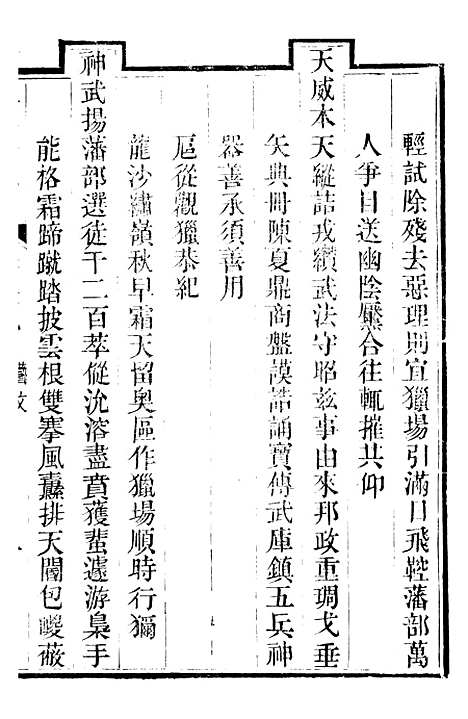 輕試除殘去惡理則宜獵場引滿日飛鞚藩部萬
人爭目送幽陰麋合往輒摧共仰
天威本天縱詰戎纘武法守昭兹事由來邦政重琱戈垂
矢典冊陳夏鼎商盤謨誥誦寶傳武庫鎮五兵神
器善承須善用
扈從觀獵恭紀
龍沙繡嶺秋早霜天留奧區作獵場順時行獮
神武揚藩部選徒千二百萃傱沇溶盡賁獲蜚遽游梟手
能格霜蹄蹴踏披雲根雙搴風纛排天閶包㚇蔽
藝文